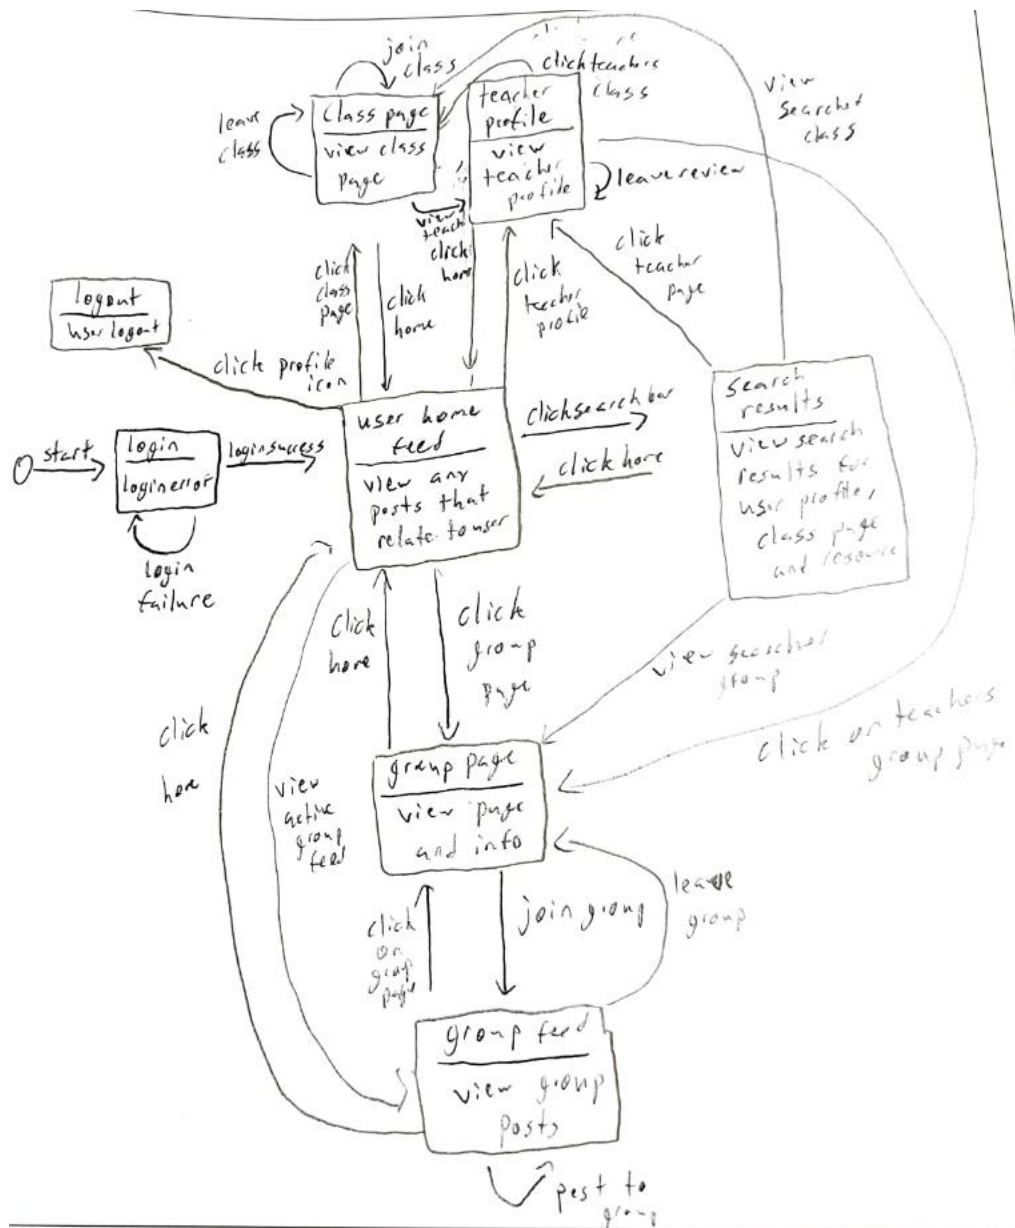 join
class
click teachers
class
view
searched
class
leave
class
class page
view class
page
teacher
profile
view
teacher
profile
leave review
view
teach
click
home
click
class
page
click
home
click
teacher
profile
click
teacher
page
logout
user logout
click profile
icon
start
login
login error
login success
login
failure
user home
feed
view any
posts that
relate to user
click search bar
click home
search
results
view search
results for
user profile,
class page
and resource
click
home
click
group
page
view searched
group
click on teachers
group page
click
home
view
active
group
feed
group page
view page
and info
click
on
group
page
join group
leave
group
group feed
view group
posts
post to
group